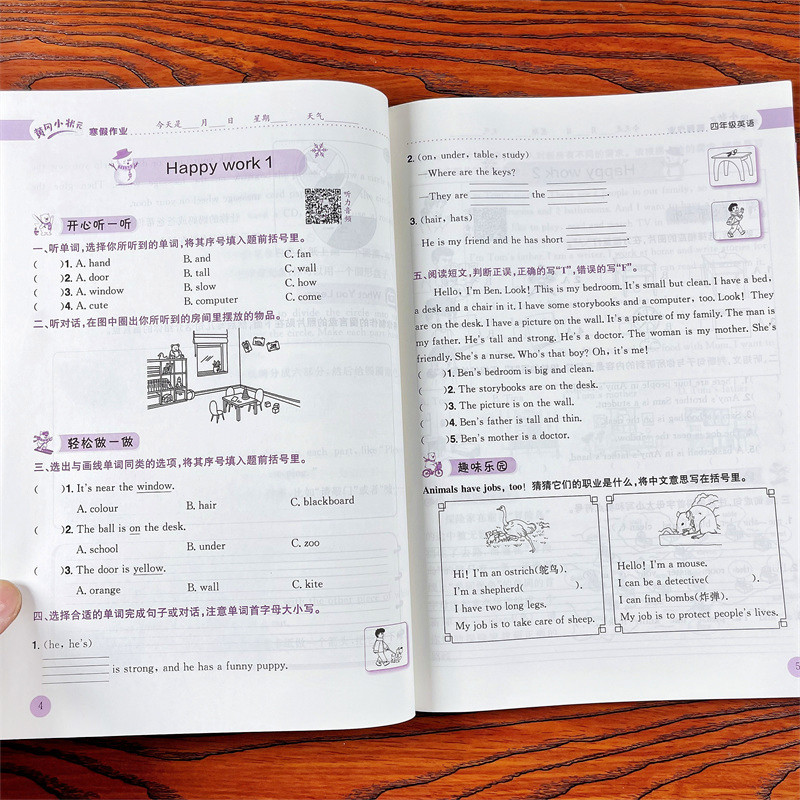 黄冈小状元 寒假作业 今天是 月 日 星期 天气
Happy work 1
听力音频
开心听一听
一、听单词,选择你所听到的单词,将其序号填入题前括号里。
( )1. A. hand B. and C. fan
( )2. A. door B. tall C. wall
( )3. A. window B. slow C. how
( )4. A. cute B. computer C. come
二、听对话,在图中圈出你所听到的房间里摆放的物品。
轻松做一做
三、选出与画线单词同类的选项,将其序号填入题前括号里。
( )1. It's near the window.
A. colour B. hair C. blackboard
( )2. The ball is on the desk.
A. school B. under C. zoo
( )3. The door is yellow.
A. orange B. wall C. kite
四、选择合适的单词完成句子或对话,注意单词首字母大小写。
1. (he, he's)
is strong, and he has a funny puppy.
4
四年级英语
2. (on, under, table, study)
—Where are the keys?
—They are the .
3. (hair, hats)
He is my friend and he has short .
五、阅读短文,判断正误,正确的写"T",错误的写"F"。
Hello, I'm Ben. Look! This is my bedroom. It's small but clean. I have a bed,
a desk and a chair in it. I have some storybooks and a computer, too. Look! They
are on the desk. I have a picture on the wall. It's a picture of my family. The man is
my father. He's tall and strong. He's a doctor. The woman is my mother. She's
friendly. She's a nurse. Who's that boy? Oh, it's me!
( )1. Ben's bedroom is big and clean.
( )2. The storybooks are on the desk.
( )3. The picture is on the wall.
( )4. Ben's father is tall and thin.
( )5. Ben's mother is a doctor.
趣味乐园
Animals have jobs, too! 猜猜它们的职业是什么,将中文意思写在括号里。
Hi! I'm an ostrich(鸵鸟).
I'm a shepherd( ).
I have two long legs.
My job is to take care of sheep.
Hello! I'm a mouse.
I can be a detective( ).
I can find bombs(炸弹).
My job is to protect people's lives.
5